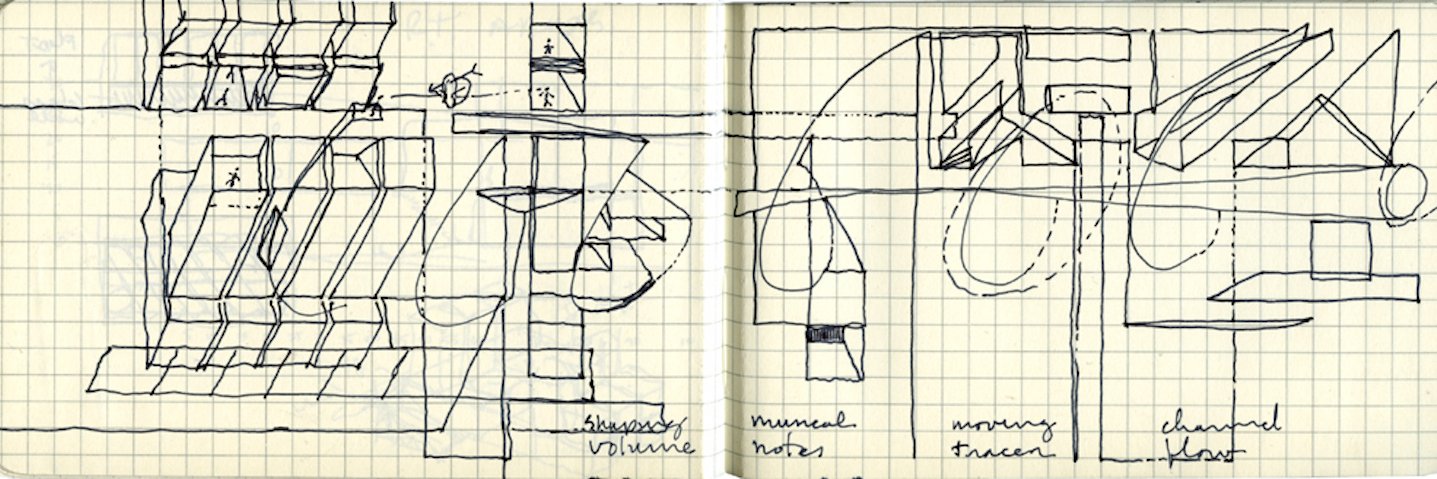 shaping
volume
musical
notes
moving
tracer
channel
flow